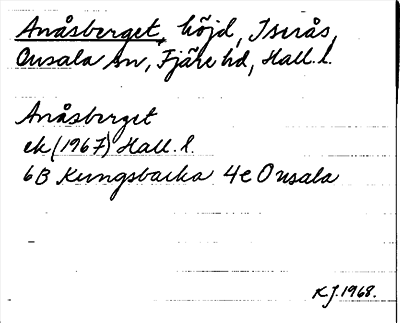 Anåsberget, höjd, Isnås,
Onsala sn, Fjäre hd, Hall. l.
Anåsberget
ek (1967) Hall. l.
6B Kungsbacka 4e Onsala
K.J. 1968.